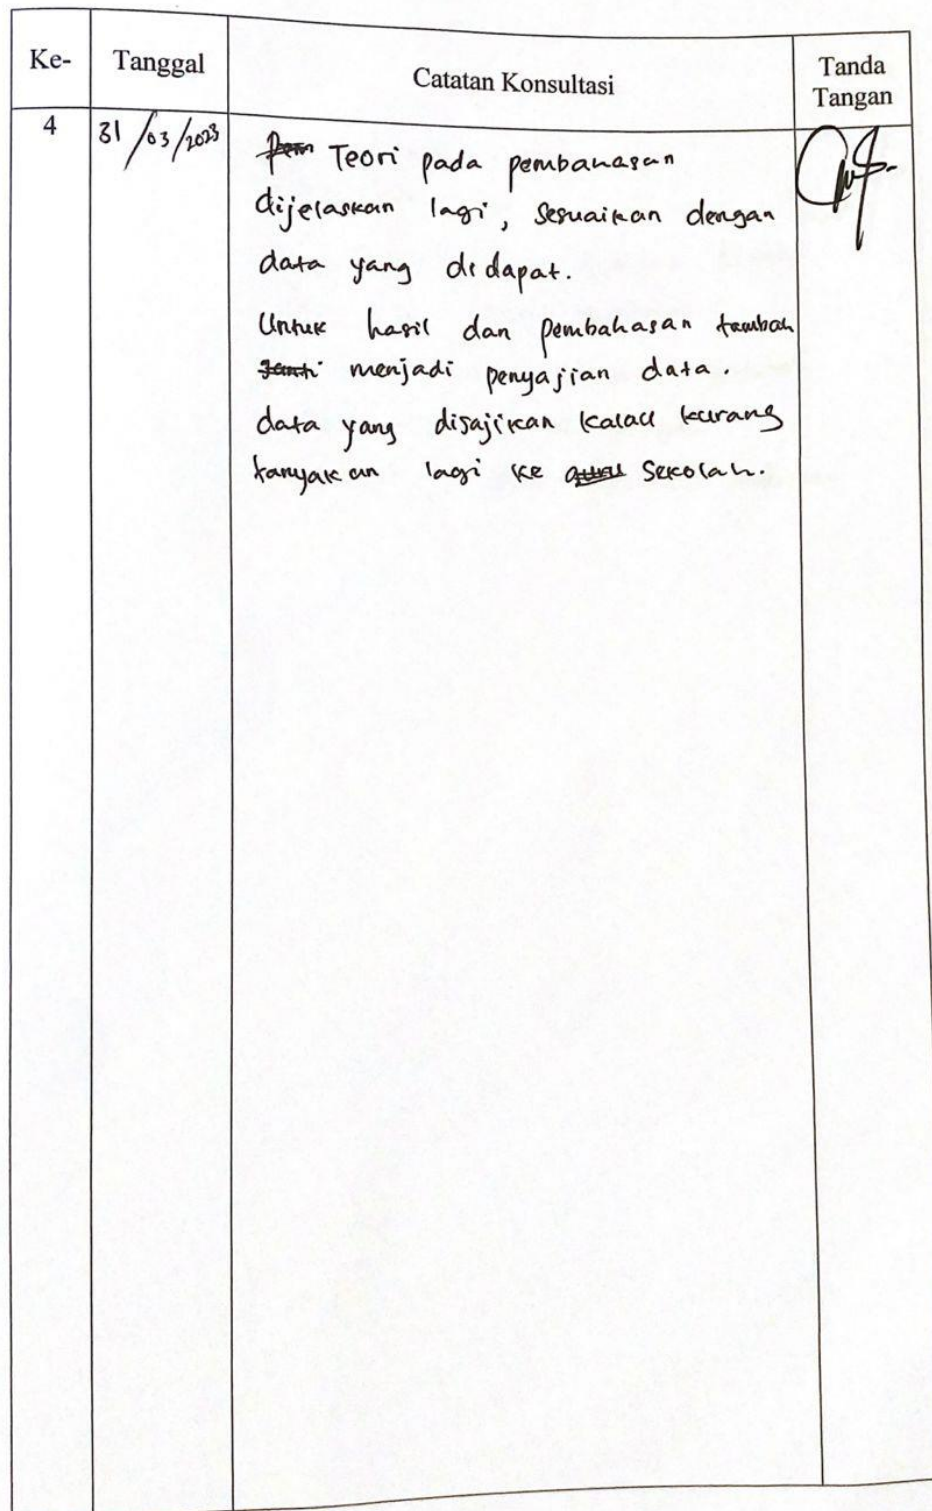 Ke- Tanggal Catatan Konsultasi Tanda Tangan
4 31/03/2023
Teori pada pembahasan
dijelaskan lagi, sesuaikan dengan
data yang didapat.
Untuk hasil dan pembahasan tambah
menjadi penyajian data.
data yang disajikan kalau kurang
tanyakan lagi ke sekolah.